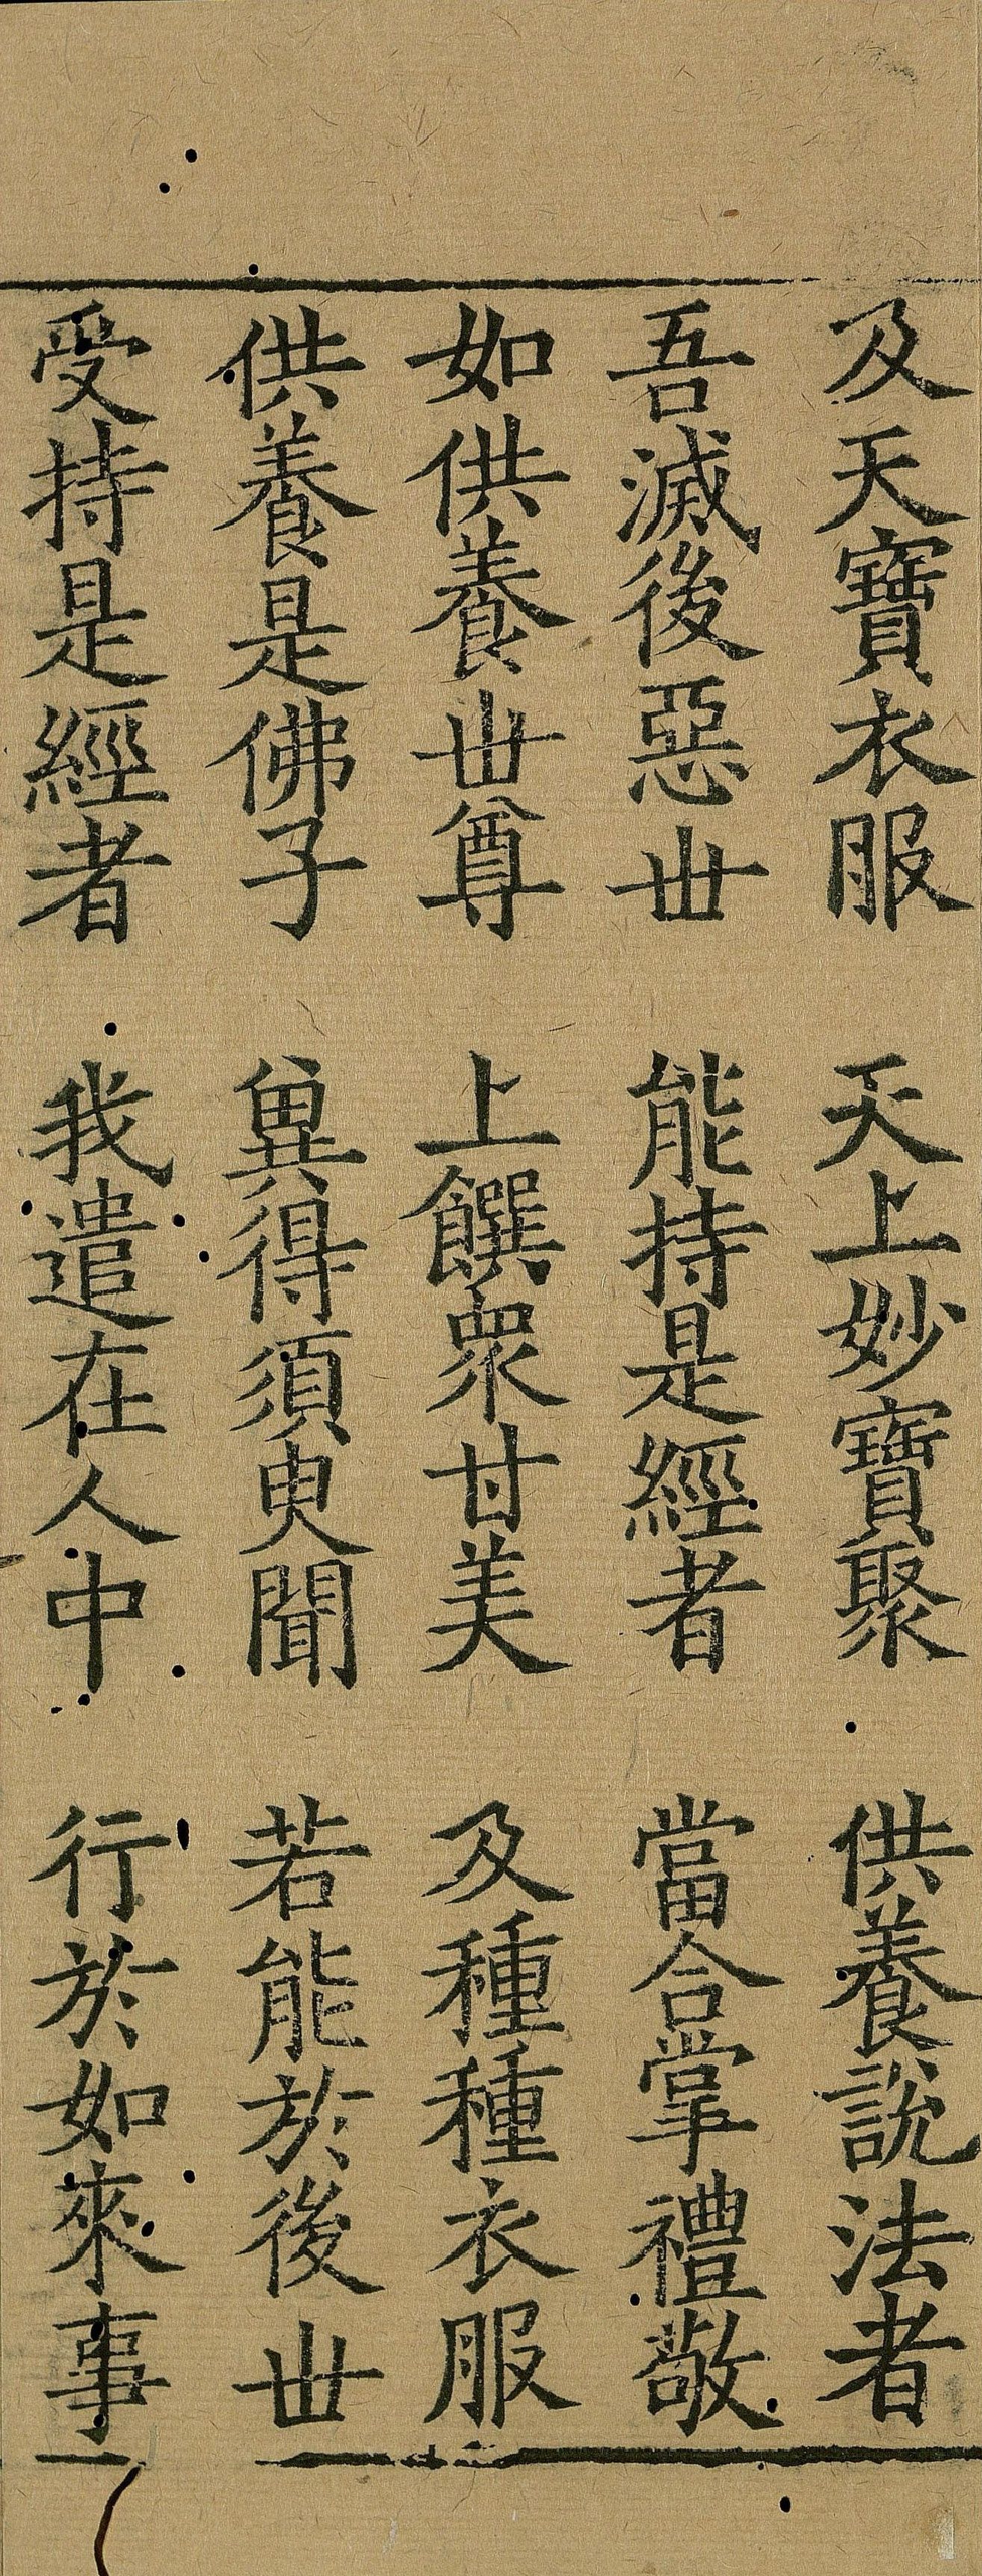 及天寶衣服　天上妙寶聚　供養說法者
吾滅後惡丗　能持是經者　當合掌禮敬
如供養丗尊　上饌衆甘美　及種種衣服
供養是佛子　兾得須臾聞　若能於後丗
受持是經者　我遣在人中　行於如來事